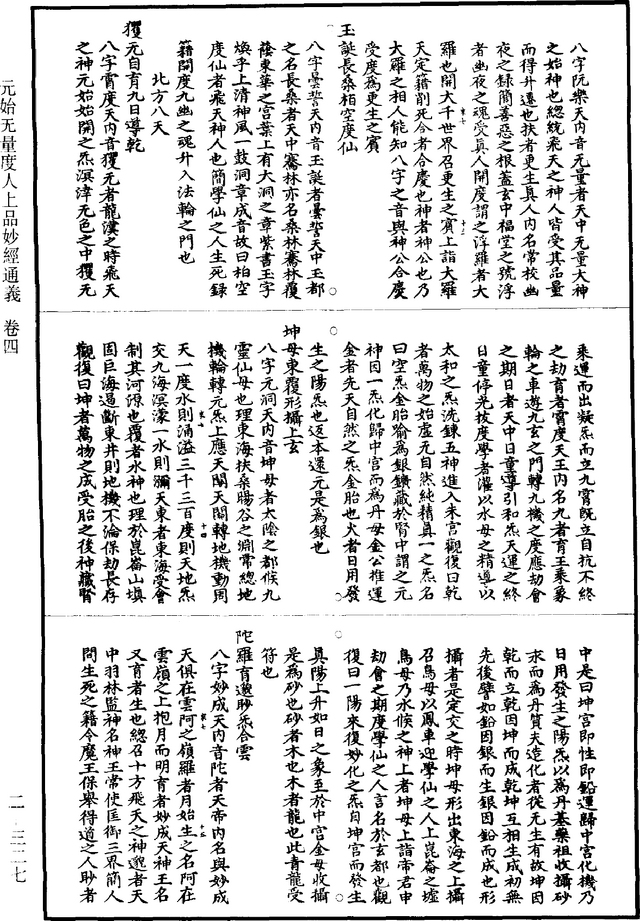 八字阮樂天內音无量者天中无量大神
之始神也總統飛天之神人皆受其品量
而得升遷也扶者更生真人內名常校幽
夜之録簡善惡之根蓋玄中福堂之號浮
者幽夜之魂受真人開度謂之浮羅者大
羅也開大千世界召更生之賓上詣大羅
天定籍削死合者合慶也神者神公也乃
大羅之相人能知八字之音與神公合慶
受度為更生之賓
玉誕長桑栢空度仙
八字曇誓天內音玉誕者曇誓天中玉都
之名長桑者天中騫林亦名桑林騫林覆
蔭東華之宮葉上有大洞之章紫書玉字
煥乎上清神風一鼓洞章成音故曰柏空
度仙者飛天神人也簡學仙之人生死録
籍開度九幽之魂升入法輪之門也
北方八天
玃元自育九日導乾
八字霄度天內音玃元者龍漢之時飛天
之神元始始開之炁溟涬无色之中玃元
乘運而出凝炁而立九霄旣立自抗不終
之劫育者霄度天王內名九者育王乘象
輪之車遊九玄之門轉九機之度應劫會
之期日者天中日童導引和炁天運之終
日童停光拔度學者灌以水母之精導以
太和之炁洗鍊五神進入朱宮觀復曰乾
者萬物之始虛无自然純精真一之炁名
曰空炁金胎喻為銀鑛藏於腎中謂之元
神因一炁化歸中宮而為丹母金公推運
金者先天自然之炁金胎也火者日用發
生之陽炁也返本還元是為銀也
坤母東覆形攝上玄
八字元洞天內音坤母者太陰之都候九
靈仙母也理東海扶桑暘谷之淵常總地
機輪轉元炁上應天關天關轉地機動周
天一度水則涌溢三千三百度則天地炁
交九海溟濛一水則彌天東者東海受會
制其河源也覆者水神也理於崑崙山填
固巨海逼斷東井則地機不淪保劫長存
觀復曰坤者萬物之成受胎之後神藏腎
中是曰坤宮即性即鉛運歸中宮化機乃
日用發生之陽炁以為丹基藥祖收攝砂
求而為丹質夫造化者從无生有故坤因
乾而立乾因坤而成乾坤互相生成初無
先後譬如鉛因銀而生銀因鉛而成也形
攝者是定交之時坤母形出東海之上攝
召鳥母以鳳車迎學仙之人上崑崙之墟
鳥母乃水候之神上者坤母上詣帝君申
劫會之期度學仙之人言名於玄都也觀
復曰一陽來復妙化之炁自坤宮而發生
真陽上升如日之象至於中宮金母收攝
是為砂也砂者木也木者龍也此青龍受
符也
陀羅育邈眇炁合雲
八字妙成天內音陀者天帝內名與妙成
天俱在雲阿之嶺羅者月始生之名阿在
雲嶺之上抱月而明育者妙成天神王名
又育者生也總召十方飛天之神邈者天
中羽林監神名神王常使匡御三界簡人
問生死之籍令魔王保舉得道之人眇者
元始无量度人上品妙經通義　卷四
二－三二七